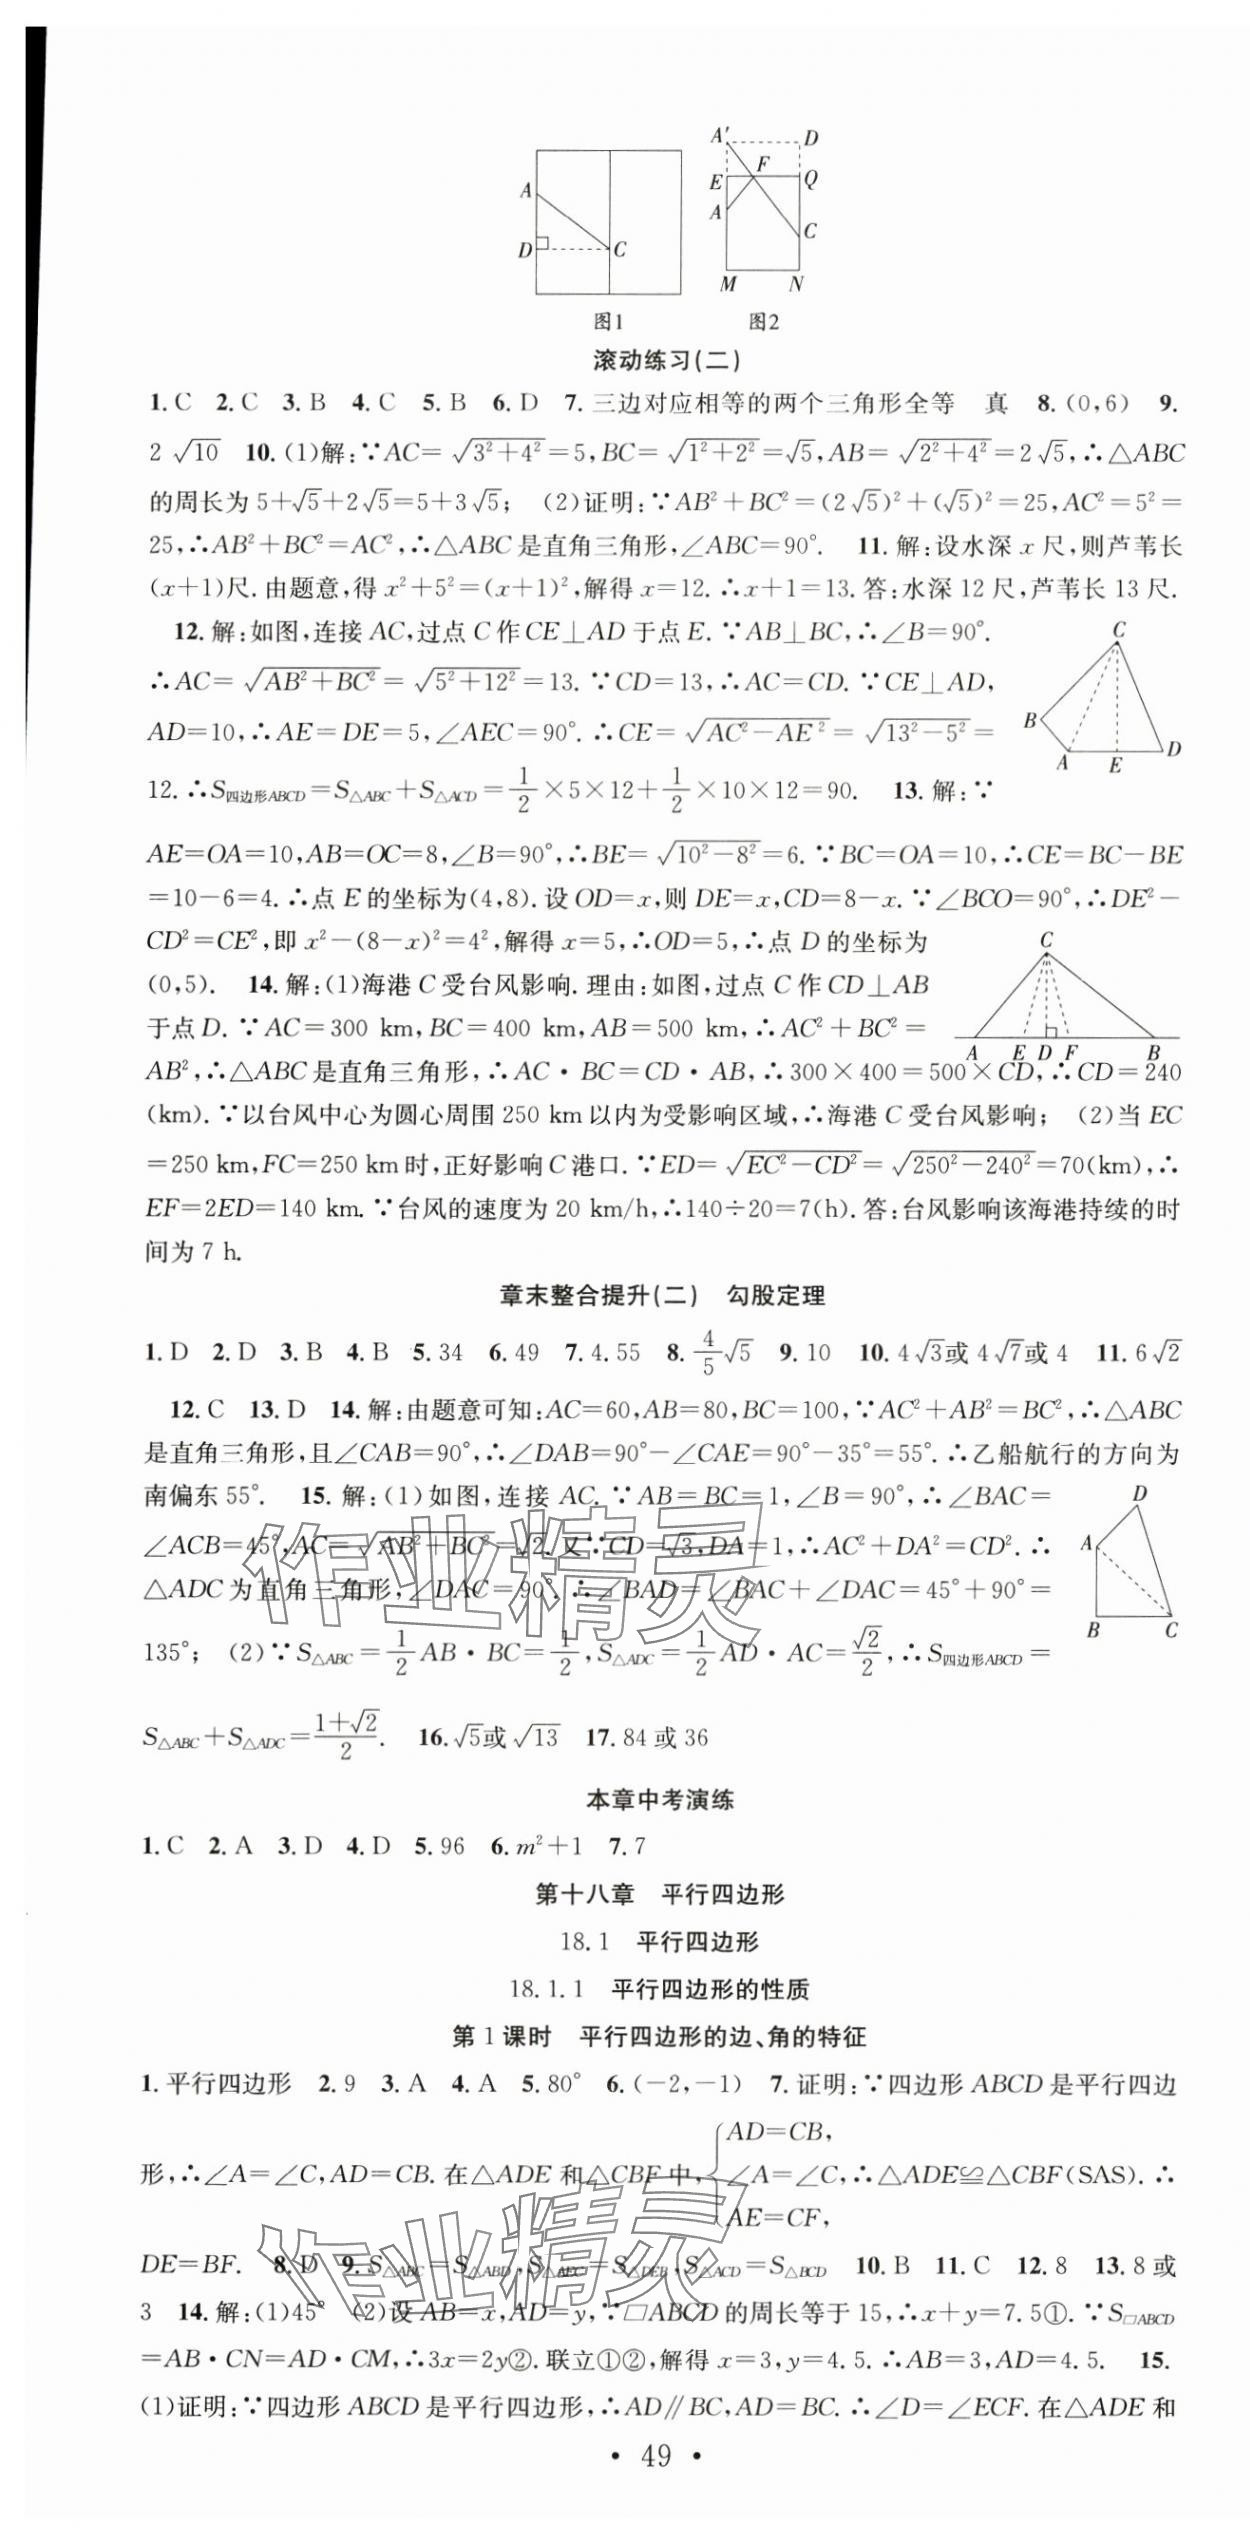 A
D
C
图1
A′ D
F
E Q
A
C
M N
图2
滚动练习(二)
1. C 2. C 3. B 4. C 5. B 6. D 7. 三边对应相等的两个三角形全等 真 8. (0,6) 9.
2√10 10. (1)解:∵AC=√(3²+4²)=5,BC=√(1²+2²)=√5,AB=√(2²+4²)=2√5,∴△ABC
的周长为 5+√5+2√5=5+3√5; (2)证明:∵AB²+BC²=(2√5)²+(√5)²=25,AC²=5²=
25,∴AB²+BC²=AC²,∴△ABC是直角三角形,∠ABC=90°. 11. 解:设水深 x 尺,则芦苇长
(x+1)尺. 由题意,得 x²+5²=(x+1)²,解得 x=12. ∴x+1=13. 答:水深 12 尺,芦苇长 13 尺.
12. 解:如图,连接 AC,过点 C 作 CE⊥AD 于点 E. ∵AB⊥BC,∴∠B=90°.
∴AC=√(AB²+BC²)=√(5²+12²)=13. ∵CD=13,∴AC=CD. ∵CE⊥AD,
AD=10,∴AE=DE=5,∠AEC=90°. ∴CE=√(AC²-AE²)=√(13²-5²)=
C
B
A E D
12. ∴S四边形ABCD=S△ABC+S△ACD=1/2×5×12+1/2×10×12=90. 13. 解:∵
AE=OA=10,AB=OC=8,∠B=90°,∴BE=√(10²-8²)=6. ∵BC=OA=10,∴CE=BC-BE
=10-6=4. ∴点 E 的坐标为(4,8). 设 OD=x,则 DE=x,CD=8-x. ∵∠BCO=90°,∴DE²-
CD²=CE²,即 x²-(8-x)²=4²,解得 x=5,∴OD=5,∴点 D 的坐标为
(0,5). 14. 解:(1)海港 C 受台风影响. 理由:如图,过点 C 作 CD⊥AB
于点 D. ∵AC=300 km,BC=400 km,AB=500 km,∴AC²+BC²=
C
A E D F B
AB²,∴△ABC 是直角三角形,∴AC·BC=CD·AB,∴300×400=500×CD,∴CD=240
(km). ∵以台风中心为圆心周围 250 km 以内为受影响区域,∴海港 C 受台风影响; (2)当 EC
=250 km,FC=250 km 时,正好影响 C 港口. ∵ED=√(EC²-CD²)=√(250²-240²)=70(km),∴
EF=2ED=140 km. ∵台风的速度为 20 km/h,∴140÷20=7(h). 答:台风影响该海港持续的时
间为 7 h.
章末整合提升(二) 勾股定理
1. D 2. D 3. B 4. B 5. 34 6. 49 7. 4.55 8. 4/5√5 9. 10 10. 4√3或 4√7或 4 11. 6√2
12. C 13. D 14. 解:由题意可知:AC=60,AB=80,BC=100,∵AC²+AB²=BC²,∴△ABC
是直角三角形,且∠CAB=90°,∴∠DAB=90°-∠CAE=90°-35°=55°. ∴乙船航行的方向为
南偏东 55°. 15. 解:(1)如图,连接 AC. ∵AB=BC=1,∠B=90°,∴∠BAC=
∠ACB=45°,AC=√(AB²+BC²)=√2. 又∵CD=√3,DA=1,∴AC²+DA²=CD². ∴
△ADC 为直角三角形,∠DAC=90°. ∴∠BAD=∠BAC+∠DAC=45°+90°=
D
A
B C
135°; (2)∵S△ABC=1/2AB·BC=1/2,S△ADC=1/2AD·AC=√2/2,∴S四边形ABCD=
S△ABC+S△ADC=(1+√2)/2. 16. √5或√13 17. 84 或 36
本章中考演练
1. C 2. A 3. D 4. D 5. 96 6. m²+1 7. 7
第十八章 平行四边形
18.1 平行四边形
18.1.1 平行四边形的性质
第 1 课时 平行四边形的边、角的特征
1. 平行四边形 2. 9 3. A 4. A 5. 80° 6. (-2,-1) 7. 证明:∵四边形 ABCD 是平行四边
形,∴∠A=∠C,AD=CB. 在△ADE 和△CBF 中,{AD=CB,∠A=∠C,AE=CF,∴△ADE≌△CBF(SAS). ∴
DE=BF. 8. D 9. S△ABC=S△ABD,S△AEC=S△DEB,S△ACD=S△BCD 10. B 11. C 12. 8 13. 8 或
3 14. 解:(1)45° (2)设 AB=x,AD=y,∵□ABCD 的周长等于 15,∴x+y=7.5①. ∵S□ABCD
=AB·CN=AD·CM,∴3x=2y②. 联立①②,解得 x=3,y=4.5. ∴AB=3,AD=4.5. 15.
(1)证明:∵四边形 ABCD 是平行四边形,∴AD∥BC,AD=BC. ∴∠D=∠ECF. 在△ADE 和
· 49 ·
作业精灵
作业精灵